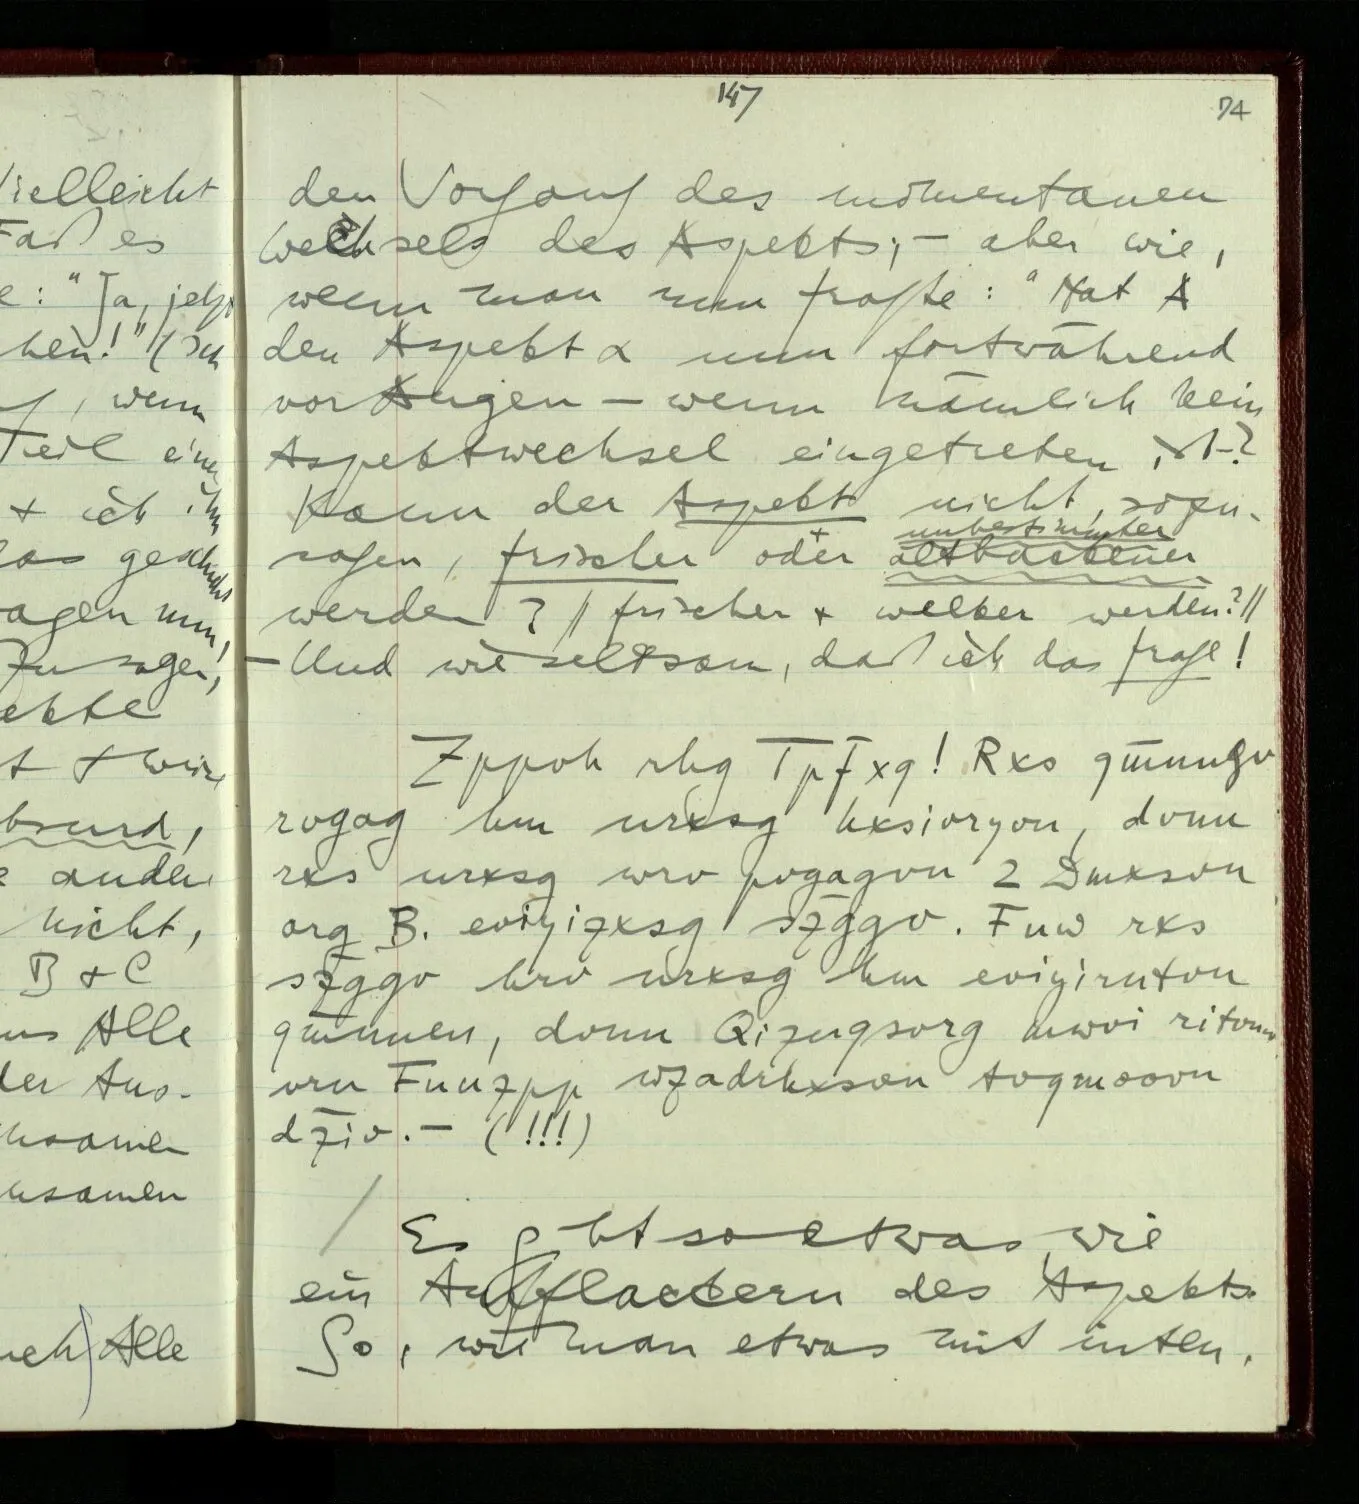 Vielleicht
Faß es
e: "Ja, jetzt
hen!" (Ich
, wenn
Teil einer
+ ich ihn
das geschieht
ragen nun,
zu sagen,
ekte
t + wir
bsurd,
e andere
nicht,
B + C
uns Alle
der Aus-
haamen
ksamen
uch) Alle
147
74
den Vorgang des momentanen
Wechsels des Aspekts; – aber wie,
wenn man nun fragte: "Hat A
den Aspekt α nun fortwährend
vor Augen – wenn nämlich kein
Aspektwechsel eingetreten ist–?
Kann der Aspekt nicht, sozu-
unbestimmter
sagen, frischer oder altbackener
werden? // frischer + welker werden? //
– Und wie seltsam, daß ich das frage!
Zppvh rhg Tpf̈xq! Rxs qm̈nngv
rvgag hm nrxsg hxsivryvn, dvnn
rxs nrxsg wrv pvgagvn 2 Dmxsvn
org B. eviyizxsg sz̈ggv. Fnw rxs
sz̈ggv hrv nrxsg hm eviyirntvn
qm̈nnen, dvnn Qizngsvrg mwvi ritvnw
vrn Fnuzpp wzadrhxsvn tvqmoovn
dz̈iv. – (!!!)
/ Es gibt so etwas wie
ein Aufflackern des Aspekts.
So, wie man etwas mit inten-